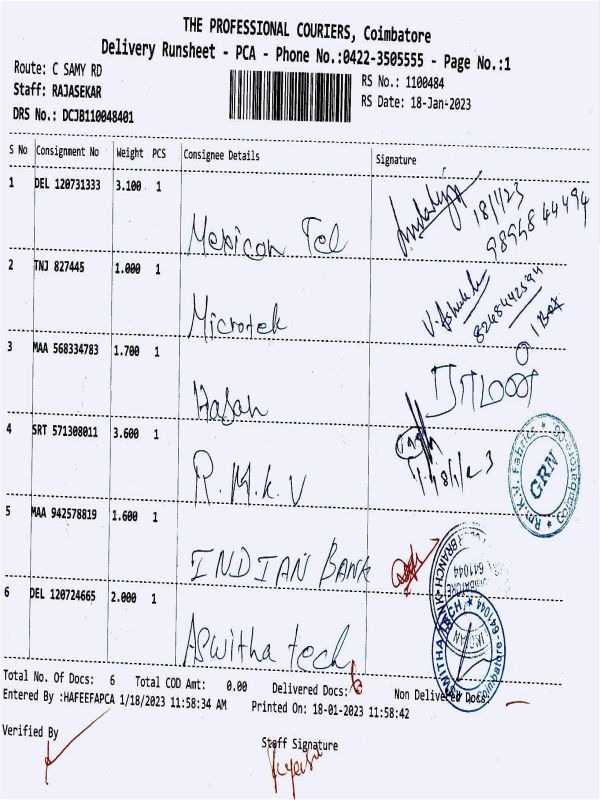 THE PROFESSIONAL COURIERS, Coimbatore
Delivery Runsheet - PCA - Phone No.:0422-3505555 - Page No.:1
Route: C SAMY RD
RS No.: 1100484
Staff: RAJASEKAR
RS Date: 18-Jan-2023
DRS No.: DCJB110048401
S No Consignment No Weight PCS Consignee Details Signature
1 DEL 120731333 3.100 1
18/1/23
98948 44494
Mexican Tel
2 TNJ 827445 1.000 1
Microtek
1 Box
3 MAA 568334783 1.700 1
Hasan
ராமன்
4 SRT 571308011 3.600 1
R.M.K.V
Rm.K.V. Fabrics * Coimbatore *
GRN
5 MAA 942578819 1.600 1
INDIAN BANK
BRANCH
641044
INDIAN
6 DEL 120724665 2.000 1
Aswitha tech
ASWITHA TECH * Coimbatore-641044 *
Total No. Of Docs: 6 Total COD Amt: 0.00 Delivered Docs: 6 Non Delivered Docs: -
Entered By :HAFEEFAPCA 1/18/2023 11:58:34 AM Printed On: 18-01-2023 11:58:42
Verified By
Staff Signature